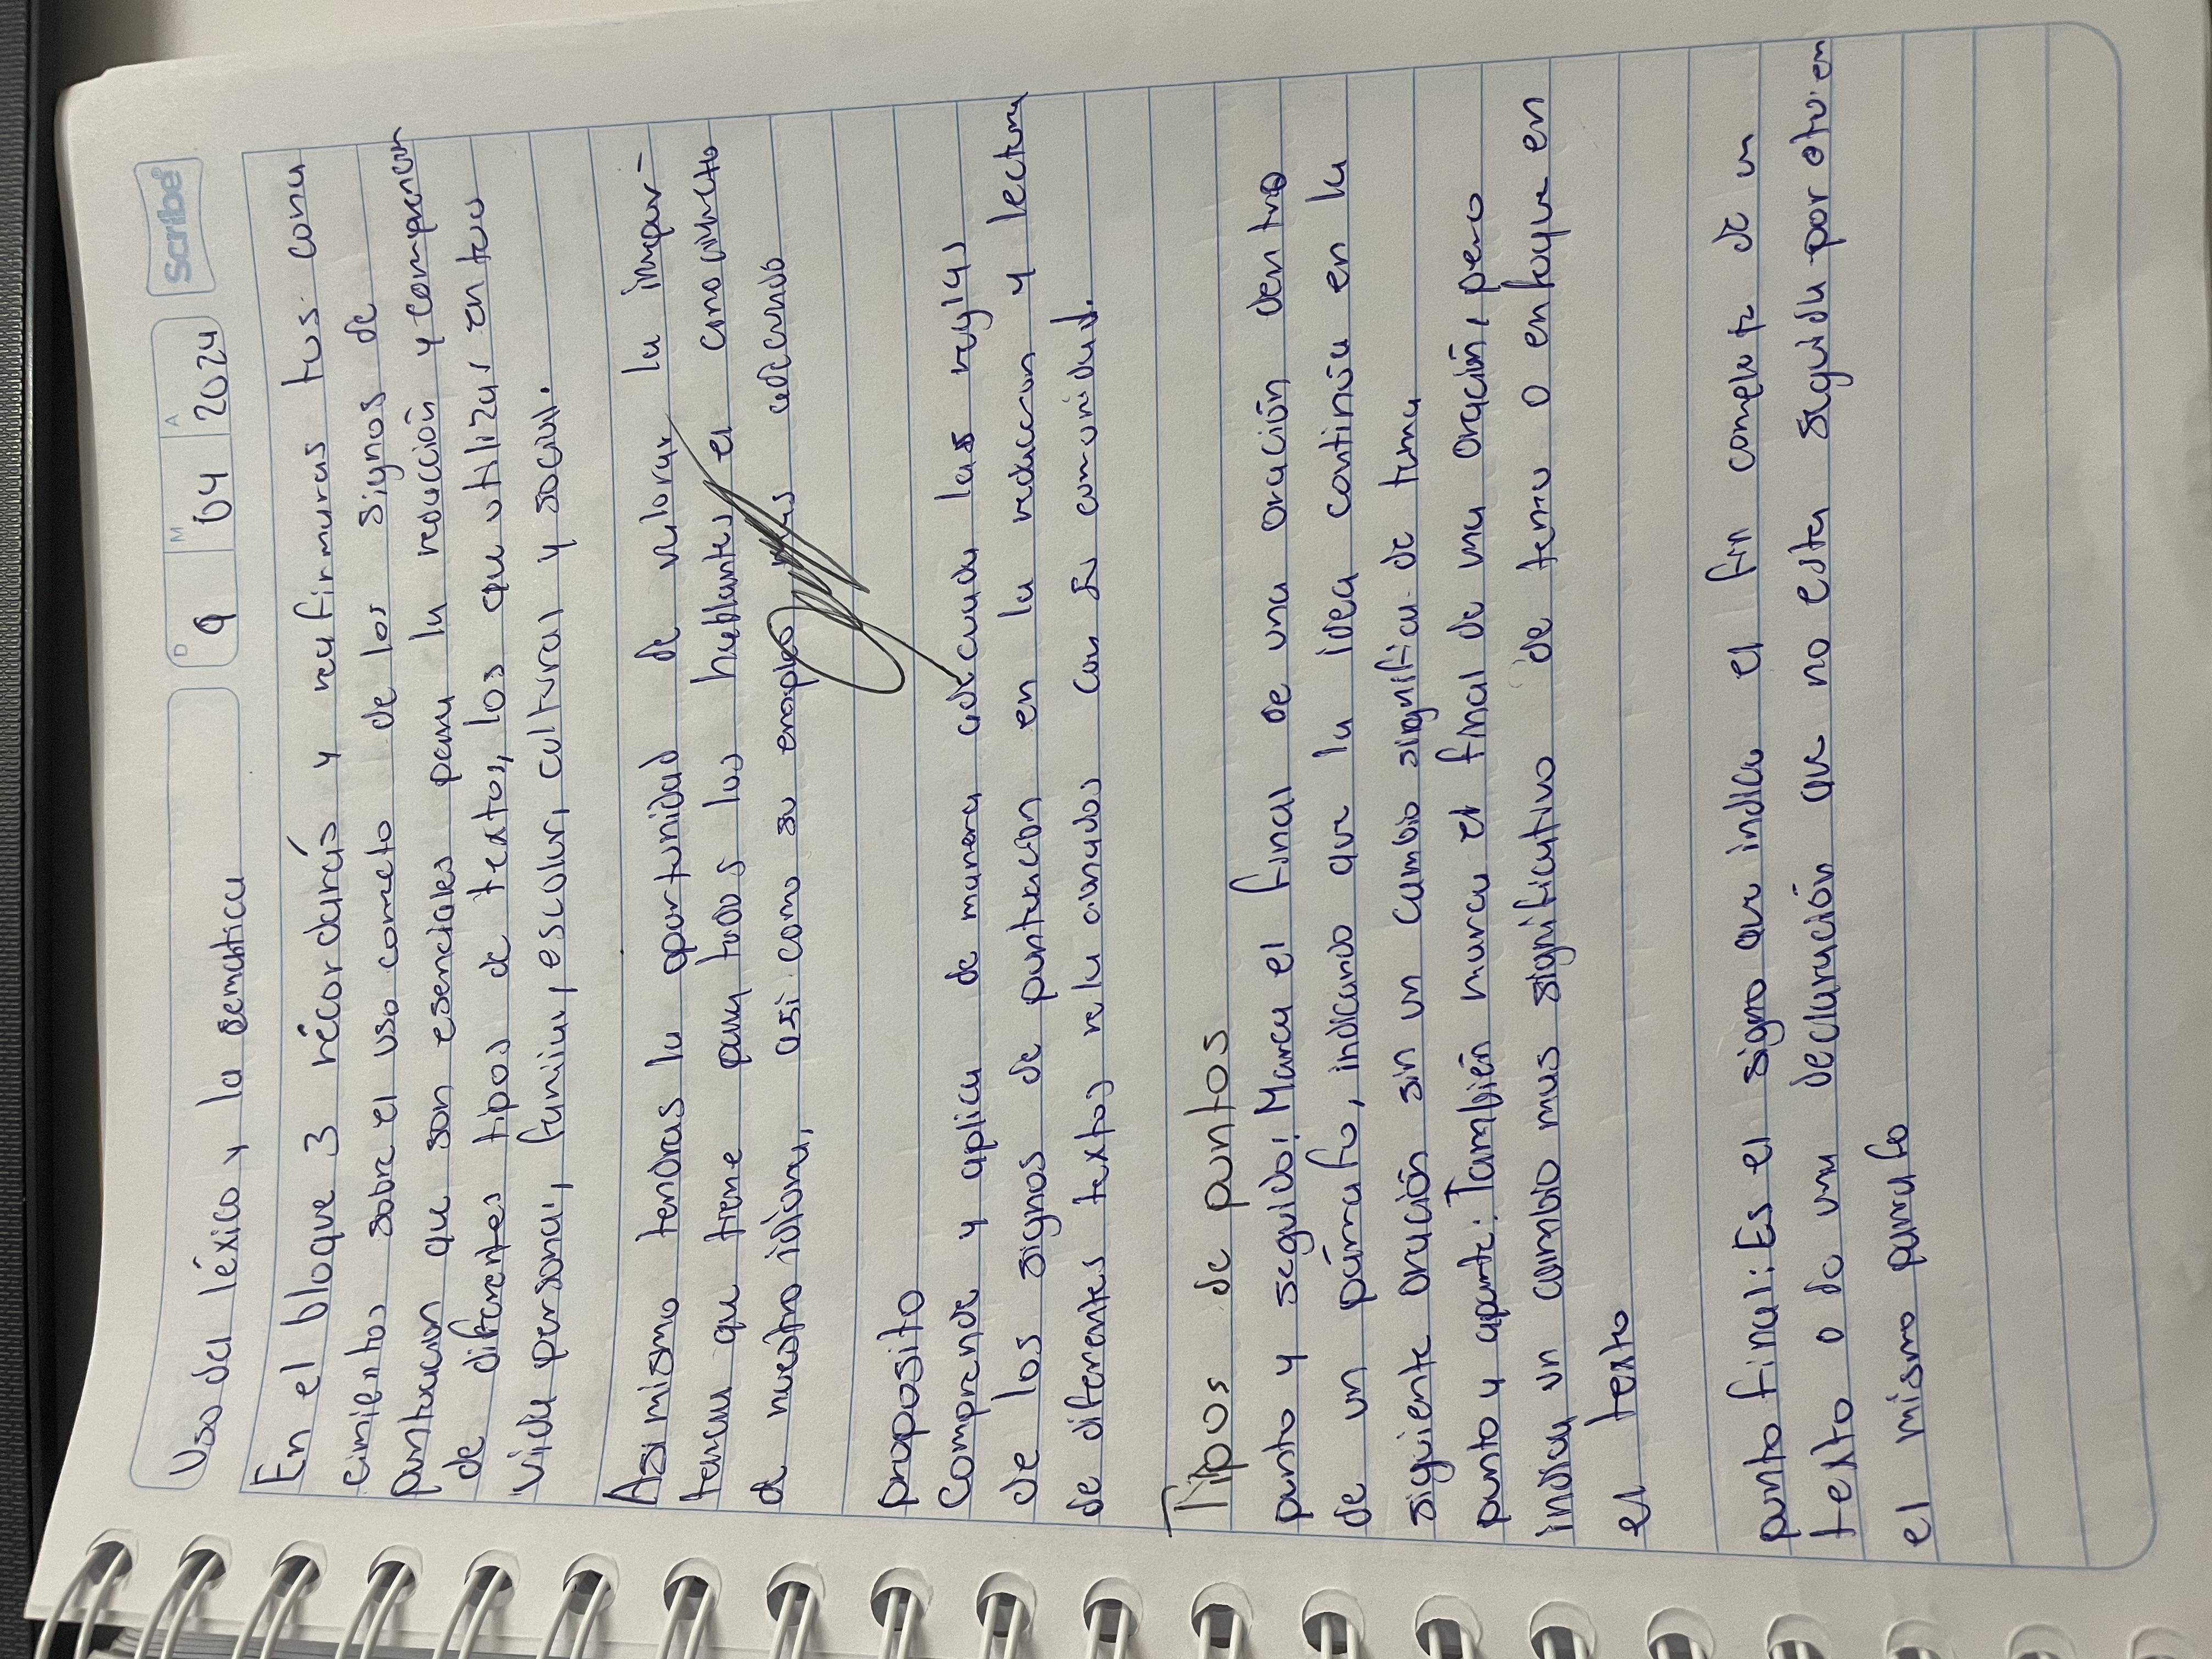 Scribe
D M A
9 04 2024
Uso del léxico y la semántica
En el bloque 3 récordarás y reafirmaras tus cono
cimientos sobre el uso correcto de los signos de
puntuacion que son esenciales para la redacción y comprension
de diferentes tipos de textos, los que utilizas en tu
vida personal, familiar, escolar, cultural y social.
Asi mismo tendras la oportunidad de valorar la impor-
tancia que tiene para todos los hablantes el conocimiento
de nuestro idioma, asi como su empleo mas adecuado
proposito
Comprende y aplica de manera adecuada las reglas
de los signos de puntuacion en la redaccion y lectura
de diferentes textos relacionados con su comunidad.
Tipos de puntos
punto y seguido: Marca el final de una oración dentro
de un párrafo, indicando que la idea continúa en la
siguiente oración sin un cambio significa. de tema
punto y aparte: También marca el final de una oración, pero
indica un cambio mas significativo de tema o enfoque en
el texto
punto final: Es el signo que indica el fin completo de un
texto o de una declaración que no esta seguida por otra en
el mismo parrafo